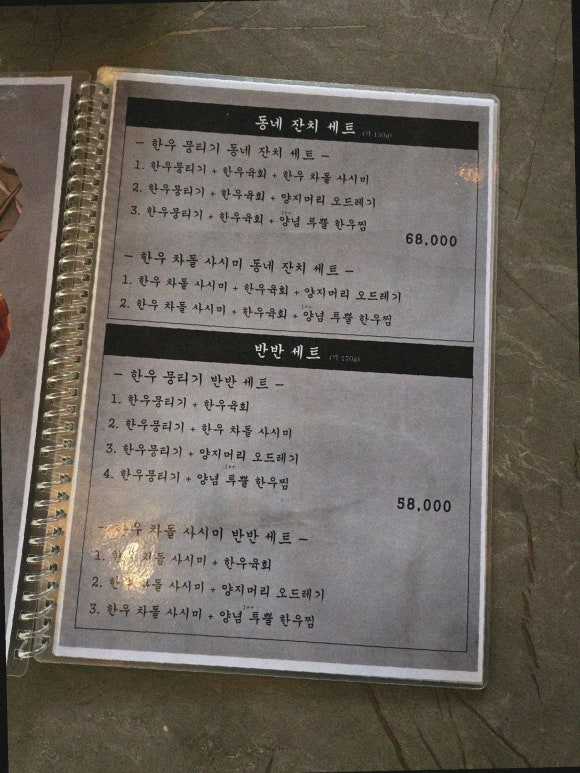 동네 잔치 세트 (각 150g)
- 한우 뭉티기 동네 잔치 세트 -
1. 한우뭉티기 + 한우육회 + 한우 차돌 사시미
2. 한우뭉티기 + 한우육회 + 양지머리 오드레기
3. 한우뭉티기 + 한우육회 + 양념 투뿔 1++ 한우찜
68,000
- 한우 차돌 사시미 동네 잔치 세트 -
1. 한우 차돌 사시미 + 한우육회 + 양지머리 오드레기
2. 한우 차돌 사시미 + 한우육회 + 양념 투뿔 1++ 한우찜
반반 세트 (각 170g)
- 한우 뭉티기 반반 세트 -
1. 한우뭉티기 + 한우육회
2. 한우뭉티기 + 한우 차돌 사시미
3. 한우뭉티기 + 양지머리 오드레기
4. 한우뭉티기 + 양념 투뿔 1++ 한우찜
58,000
- 한우 차돌 사시미 반반 세트 -
1. 한우 차돌 사시미 + 한우육회
2. 한우 차돌 사시미 + 양지머리 오드레기
3. 한우 차돌 사시미 + 양념 투뿔 1++ 한우찜